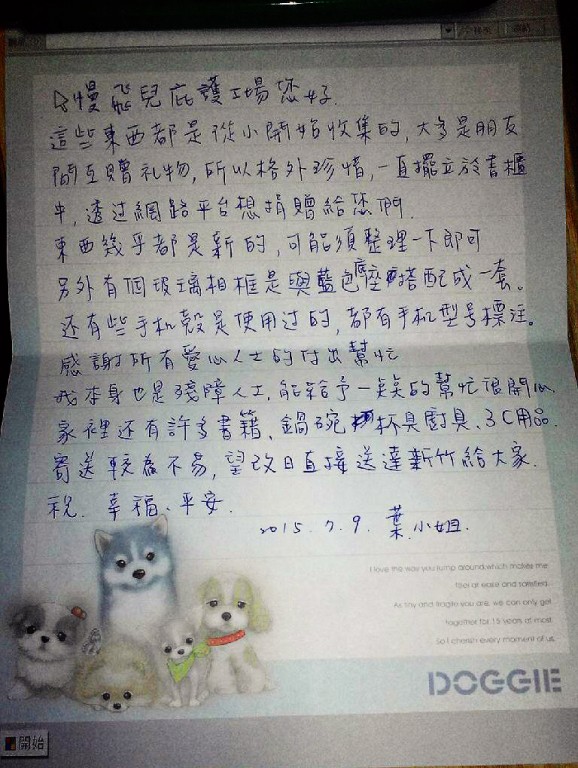 慢飛兒庇護工場您好
這些東西都是從小開始收集的,大多是朋友
間互贈礼物,所以格外珍惜,一直擺立於書櫃
中,透过網路平台想捐贈給您們.
東西幾乎都是新的,可能須整理一下即可
另外有個玻璃相框是與藍色底座搭配成一套。
还有些手机殼是使用过的,都有手机型号標注。
感謝所有愛心人士的付出幫忙
我本身也是殘障人士,能給予一點点的幫忙很開心.
家裡还有許多書籍、鍋碗杯具廚具、3C用品.
寄送較為不易,望改日直接送達新竹給大家.
祝.幸福、平安.
2015.7.9.葉小姐.
I love the way you jump around,which makes me
feel at ease and satisfied.
As tiny and fragile you are, we can only get
together for 15 years at most.
So I cherish every moment of us.
DOGGIE
開始